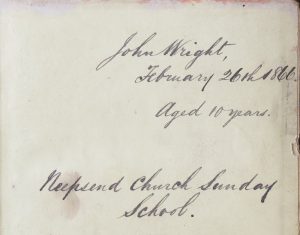 John Wright,
February 26th 1866.
Aged 10 years.
Neepsend Church Sunday
School.